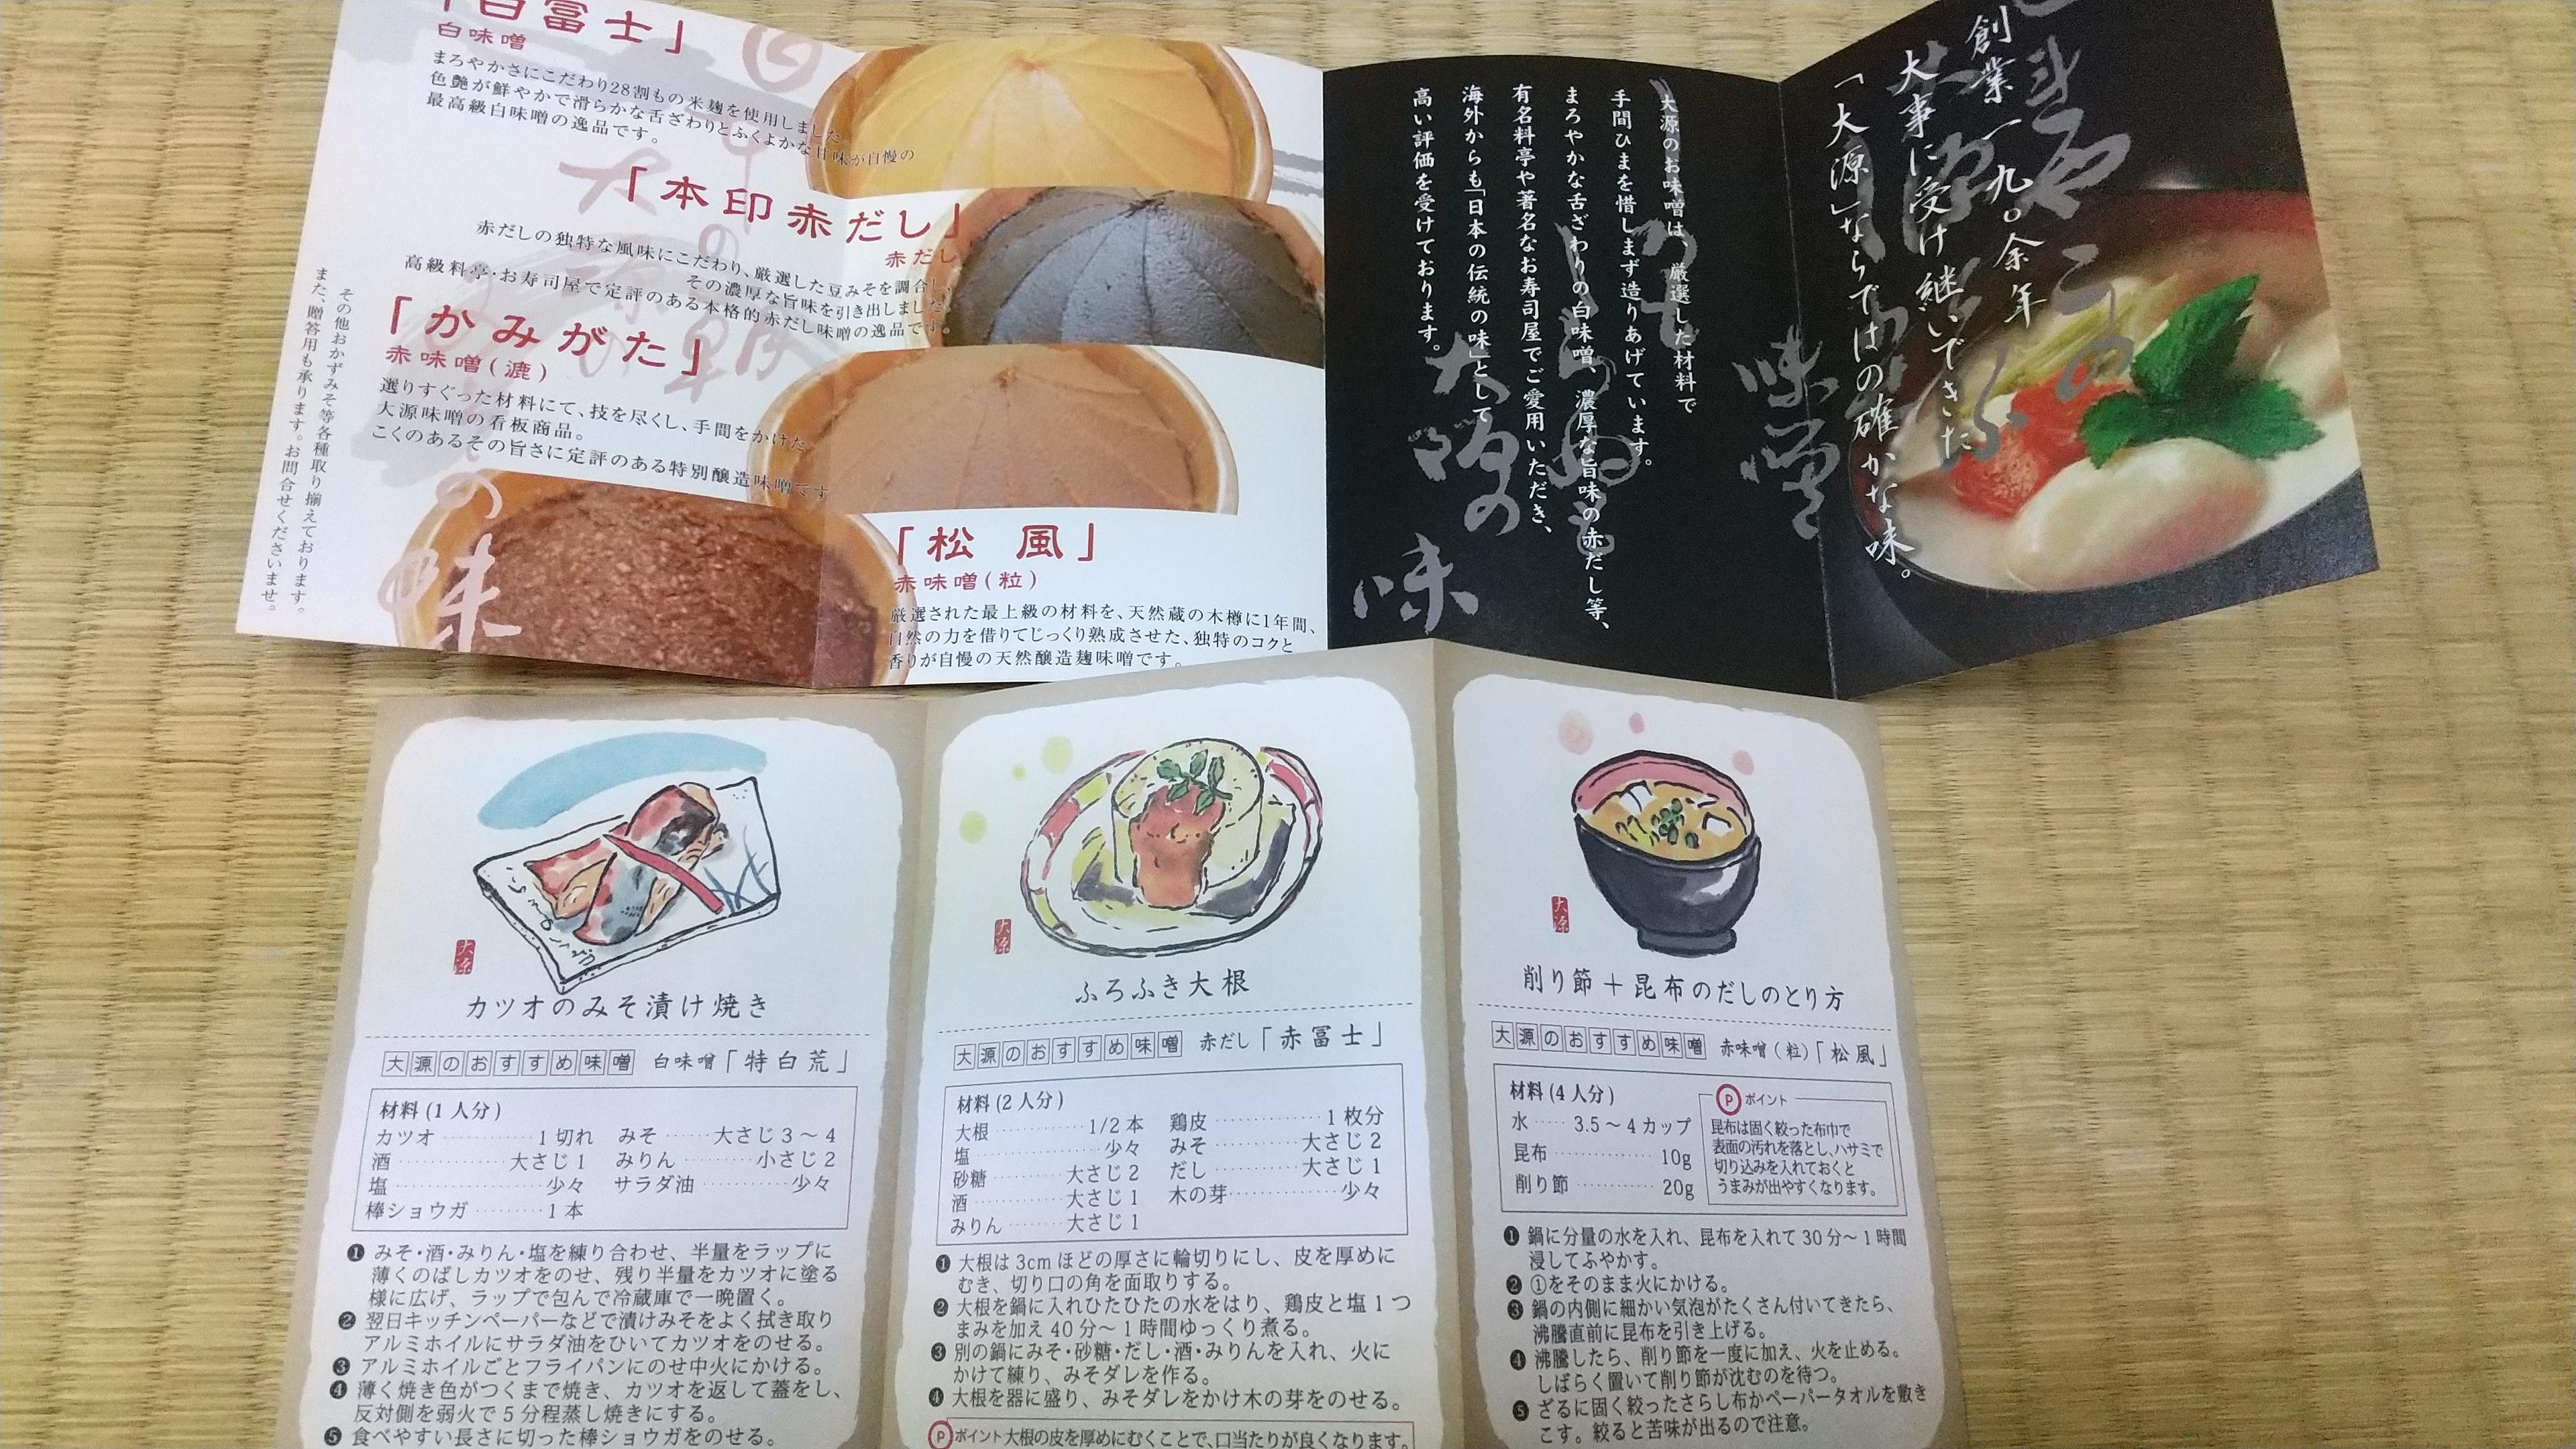 「白富士」
白味噌
まろやかさにこだわり28割もの米麹を使用しました。
色艶が鮮やかで滑らかな舌ざわりとふくよかな甘味が自慢の
最高級白味噌の逸品です。
「本印赤だし」
赤だし
赤だしの独特な風味にこだわり、厳選した豆みそを調合し、
その濃厚な旨味を引き出しました。
高級料亭・お寿司屋で定評のある本格的赤だし味噌の逸品です。
「かみがた」
赤味噌(漉)
選りすぐった材料にて、技を尽くし、手間をかけた、
大源味噌の看板商品。
こくのあるその旨さに定評のある特別醸造味噌です
「松 風」
赤味噌(粒)
厳選された最上級の材料を、天然蔵の木樽に1年間、
自然の力を借りてじっくり熟成させた、独特のコクと
香りが自慢の天然醸造麹味噌です。
その他おかずみそ等各種取り揃えております。
また、贈答用も承ります。お問合せくださいませ。
の味
創業一九〇余年
大事に受け継いできた
「大源」ならではの確かな味。
大源のお味噌は、厳選した材料で
手間ひまを惜しまず造りあげています。
まろやかな舌ざわりの白味噌、濃厚な旨味の赤だし等、
有名料亭や著名なお寿司屋でご愛用いただき、
海外からも「日本の伝統の味」として
高い評価を受けております。
味噌
大源の
味
大源
カツオのみそ漬け焼き
大源のおすすめ味噌 白味噌「特白荒」
材料(1人分)
カツオ 1切れ
酒 大さじ1
塩 少々
棒ショウガ 1本
みそ 大さじ3〜4
みりん 小さじ2
サラダ油 少々
❶ みそ・酒・みりん・塩を練り合わせ、半量をラップに
薄くのばしカツオをのせ、残り半量をカツオに塗る
様に広げ、ラップで包んで冷蔵庫で一晩置く。
❷ 翌日キッチンペーパーなどで漬けみそをよく拭き取り
アルミホイルにサラダ油をひいてカツオをのせる。
❸ アルミホイルごとフライパンにのせ中火にかける。
❹ 薄く焼き色がつくまで焼き、カツオを返して蓋をし、
反対側を弱火で5分程蒸し焼きにする。
❺ 食べやすい長さに切った棒ショウガをのせる。
大源
ふろふき大根
大源のおすすめ味噌 赤だし「赤冨士」
材料(2人分)
大根 1/2本
塩 少々
砂糖 大さじ2
酒 大さじ1
みりん 大さじ1
鶏皮 1枚分
みそ 大さじ2
だし 大さじ1
木の芽 少々
❶ 大根は3cmほどの厚さに輪切りにし、皮を厚めに
むき、切り口の角を面取りする。
❷ 大根を鍋に入れひたひたの水をはり、鶏皮と塩1つ
まみを加え40分〜1時間ゆっくり煮る。
❸ 別の鍋にみそ・砂糖・だし・酒・みりんを入れ、火に
かけて練り、みそダレを作る。
❹ 大根を器に盛り、みそダレをかけ木の芽をのせる。
Ⓟポイント 大根の皮を厚めにむくことで、口当たりが良くなります。
大源
削り節＋昆布のだしのとり方
大源のおすすめ味噌 赤味噌(粒)「松風」
材料(4人分)
水 3.5〜4カップ
昆布 10g
削り節 20g
Ⓟ ポイント
昆布は固く絞った布巾で
表面の汚れを落とし、ハサミで
切り込みを入れておくと
うまみが出やすくなります。
❶ 鍋に分量の水を入れ、昆布を入れて30分〜1時間
浸してふやかす。
❷ ①をそのまま火にかける。
❸ 鍋の内側に細かい気泡がたくさん付いてきたら、
沸騰直前に昆布を引き上げる。
❹ 沸騰したら、削り節を一度に加え、火を止める。
しばらく置いて削り節が沈むのを待つ。
❺ ざるに固く絞ったさらし布かペーパータオルを敷き
こす。絞ると苦味が出るので注意。